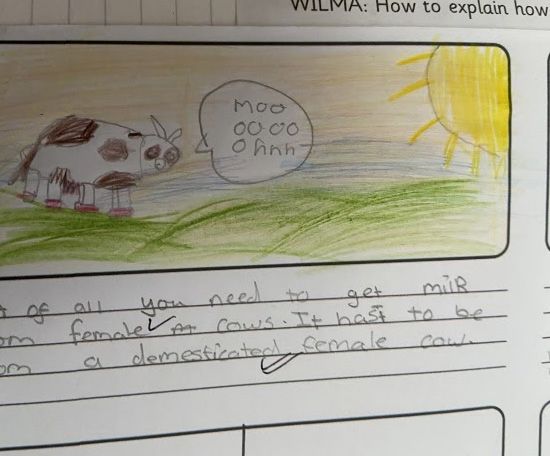 WILMA: How to explain how
Moo
oo oo
ohhh
of all you need to get milk
female cows. It hast to be
a demesticated female cow.